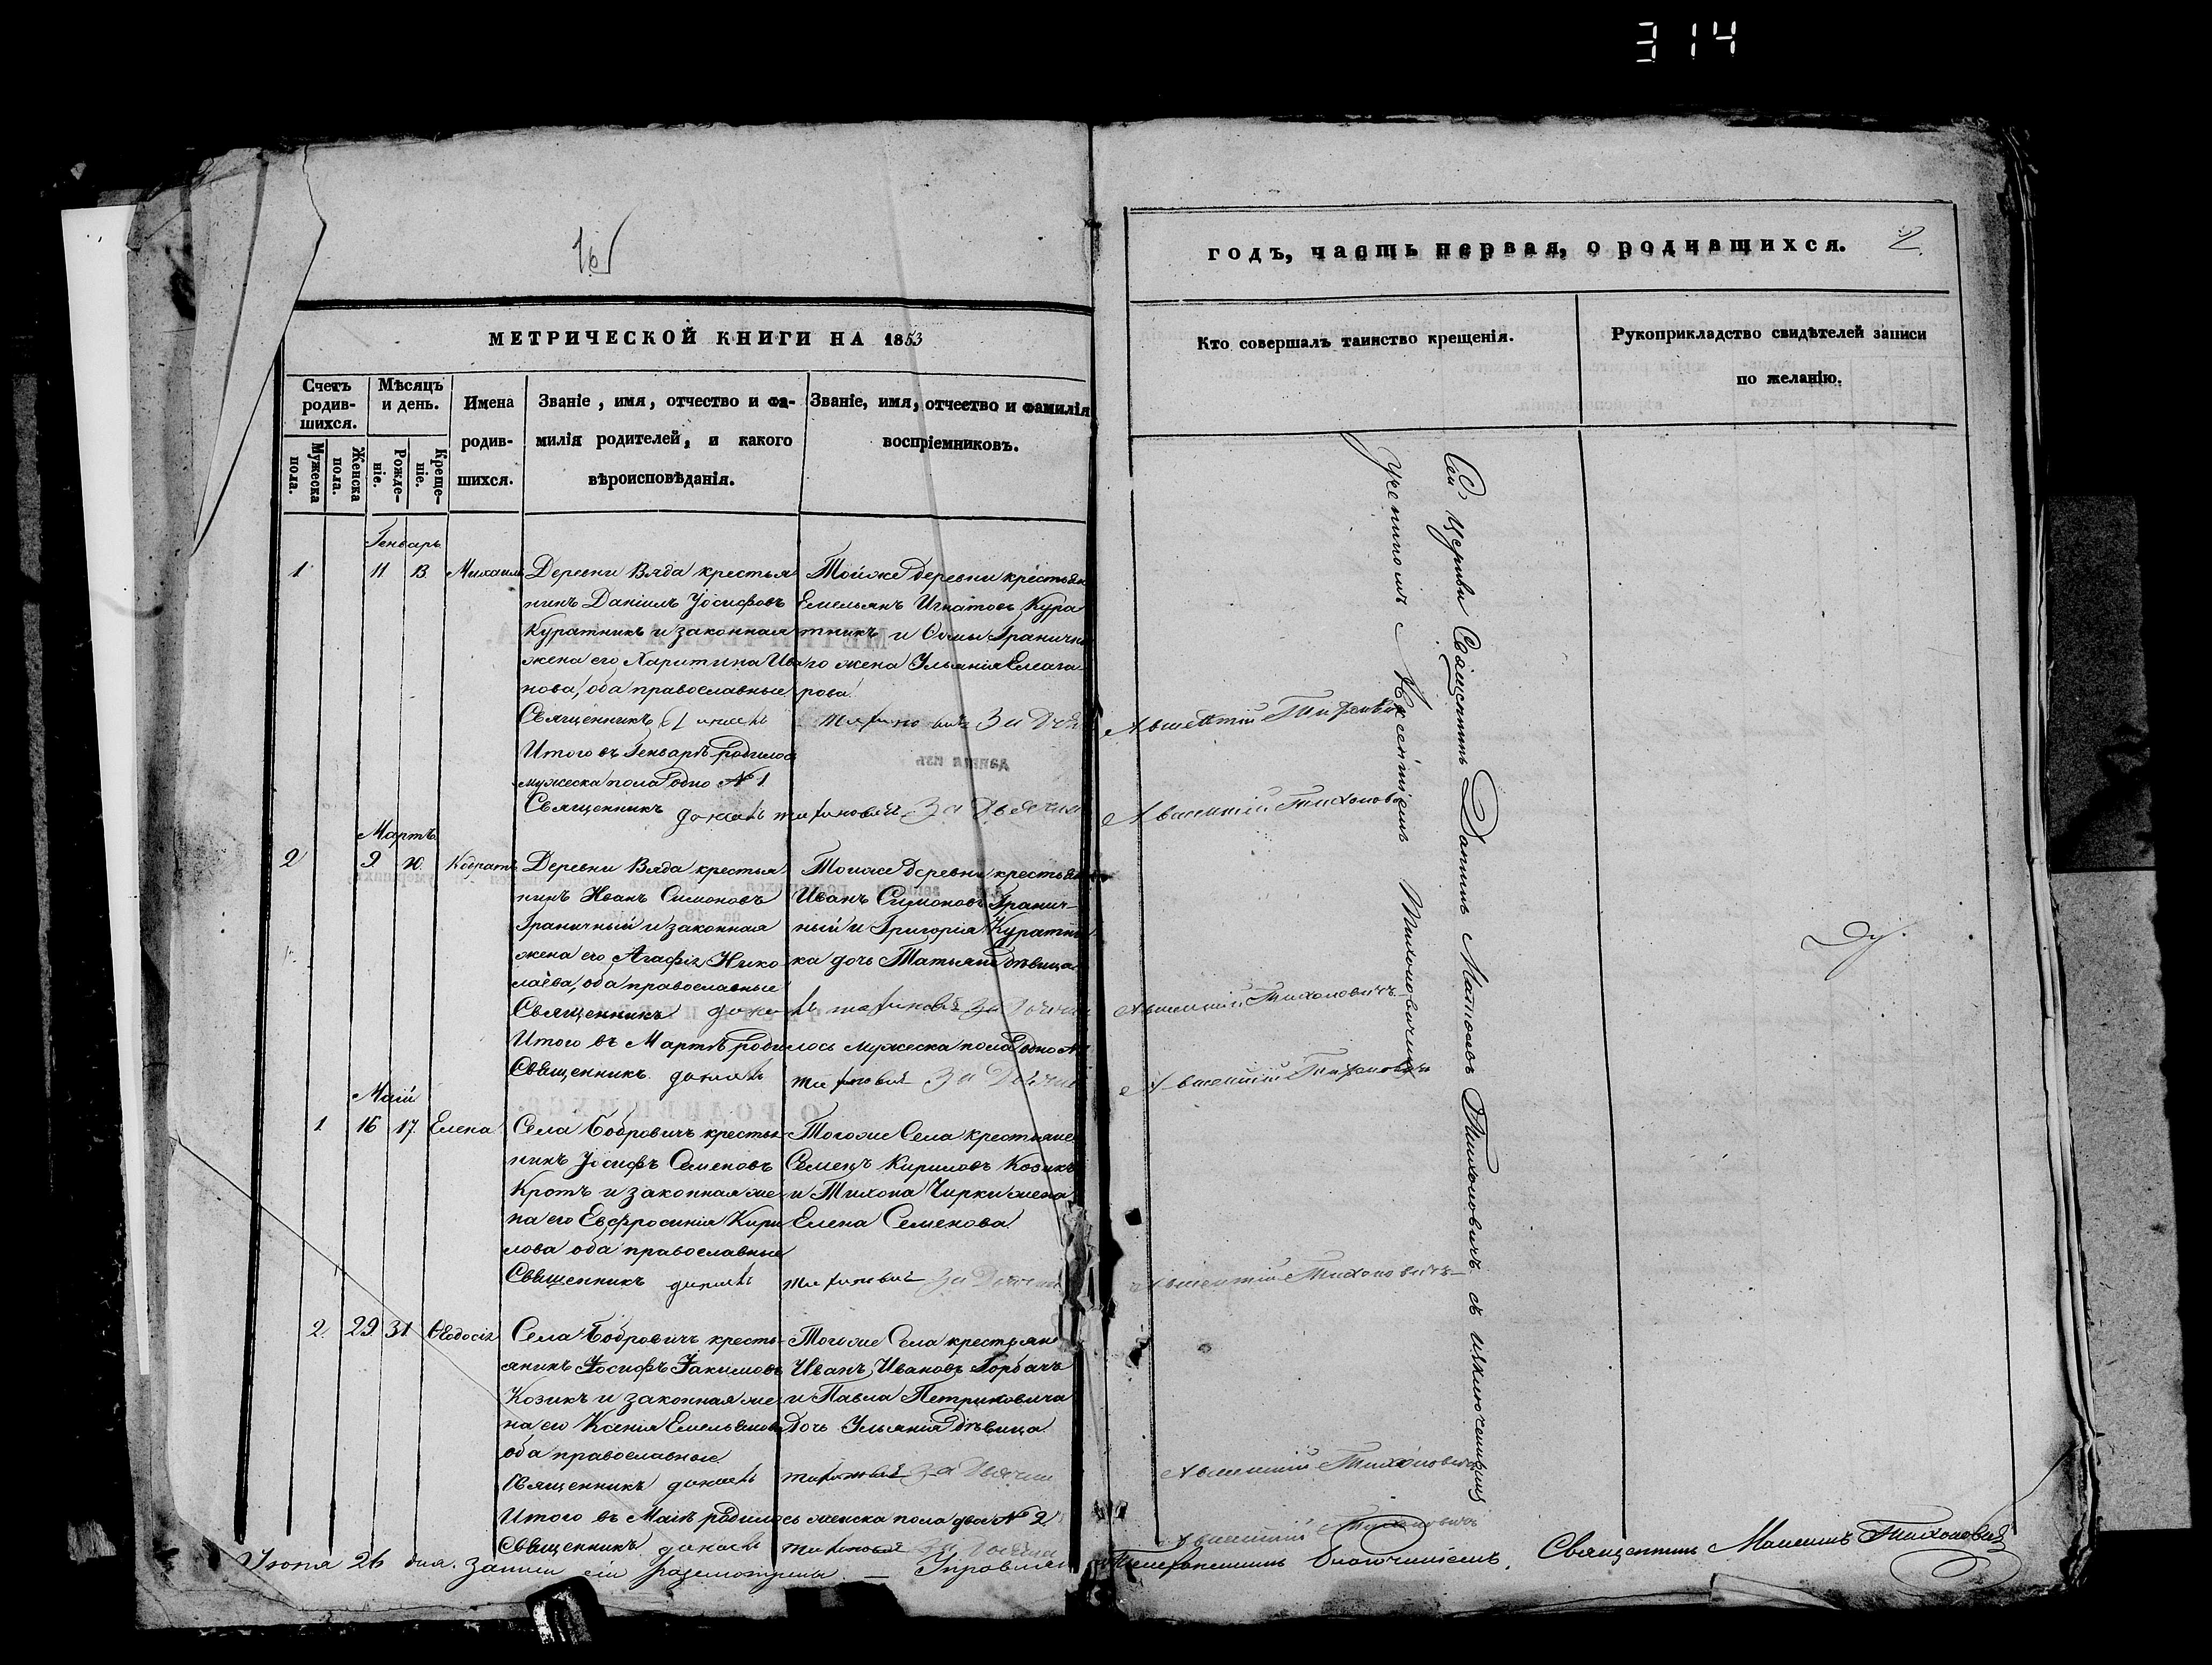 314
16
МЕТРИЧЕСКОЙ КНИГИ НА 1853
Счетъ родив-шихся.
Мужеска пола.
Женска пола.
Мѣсяцъ и день.
Рожде-ніе.
Креще-ніе.
Имена родив-шихся.
Званіе, имя, отчество и фа-
милія родителей, и какого
вѣроисповѣданія.
Званіе, имя, отчество и фамилія
воспріемниковъ.
Генварь
1 11 13 Михаилъ
Деревни Вяда крестья
нинъ Даніилъ Іосифовъ
Куратникъ и законная
жена его Харитина Ива
нова, оба православные
Тойже деревни крестьян
Емельянъ Игнатовъ Кура
тникъ и Ѳомы Гранична
го жена Ульянія Елеаза
рова
Священникъ
Итого въ Генварѣ родилось
мужеска пола одно №1
Священникъ
Мартъ
2 9 10 Кодратъ
Деревни Вяда крестья
нинъ Иванъ Симоновъ
Граничный и законная
жена его Агафія Нико
лаева, оба православные
Тойже деревни крестьян
Иванъ Симоновъ Гранич-
ный и Григорія Куратни
ка дочь Татьяна дѣвица
Священникъ
Итого въ Мартѣ родилось мужеска пола одно №
Священникъ
Маій
1 16 17 Елена
Села Бобровичъ крестья
нинъ Іосифъ Семеновъ
Кротъ и законная же
на его Евфросинія Кири
лова оба православные
Тогоже Села крестьяне
Семенъ Кириловъ Козикъ
и Тихона Чирки жена
Елена Семенова
Священникъ
2 29 31 Ѳеодосія
Села Бобровичъ кресть
янинъ Іосифъ Іакимовъ
Козикъ и законная же
на его Ксенія Емельянова
оба православные
Тогоже Села крестьяне
Иванъ Ивановъ Горбачъ
и Павла Петриковича
дочь Ульянія дѣвица
Священникъ
Итого въ Маіѣ родилось женска пола два №2
Священникъ
Іюня 26 дня. Записи сіи разсмотрены. —
годъ, часть первая, о родившихся.
2.
Кто совершалъ таинство крещенія.
Рукоприкладство свидѣтелей записи
по желанію.
Сей церкви Священникъ Даніилъ Тихоновичъ съ
Авксентіемъ Тихоновичемъ
Авксентій Тихоновичъ
Авксентій Тихоновичъ
Авксентій Тихоновичъ
Авксентій Тихоновичъ
Авксентій Тихоновичъ
Авксентій Тихоновичъ
Авксентій Тихоновичъ
благочиніемъ, Священникъ Тихоновичъ